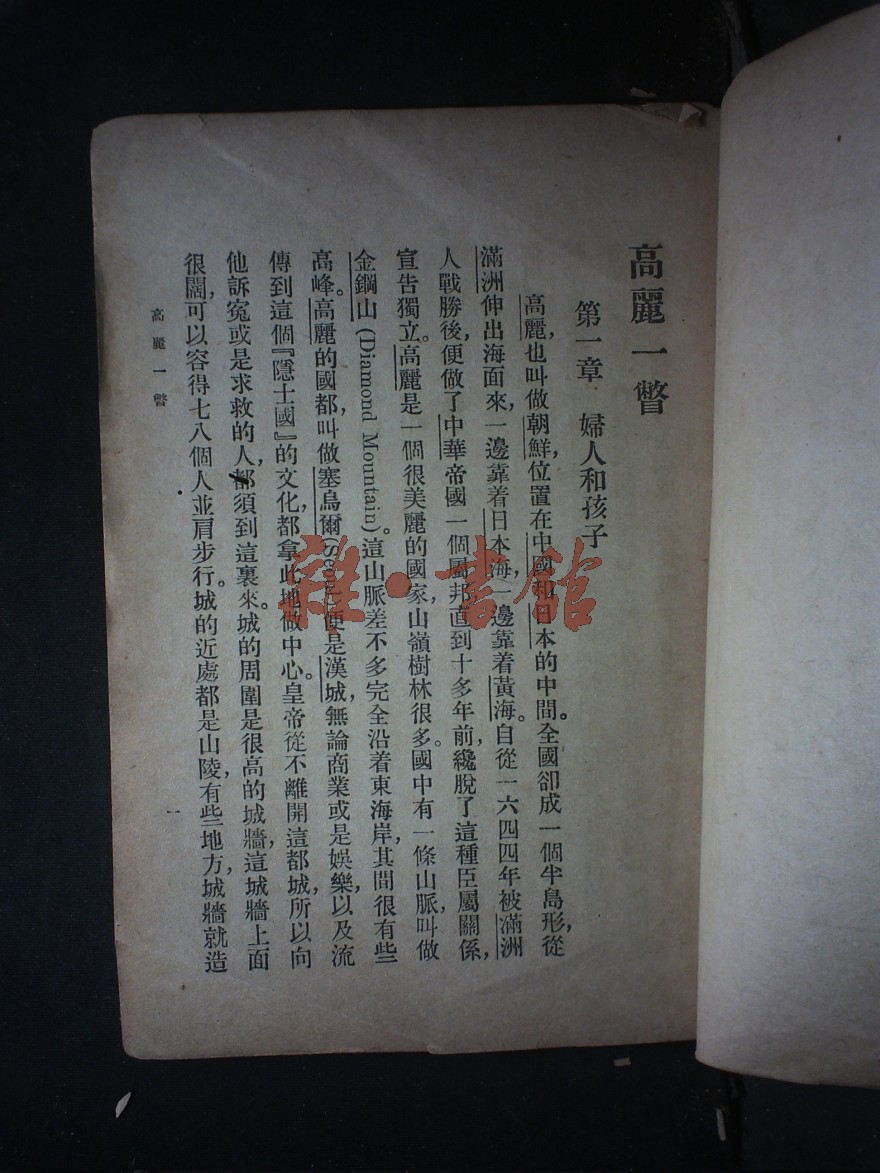 高麗一瞥
第一章 婦人和孩子
高麗，也叫做朝鮮，位置在中國和日本的中間。全國卻成一個半島形，從
滿洲伸出海面來，一邊靠着日本海，一邊靠着黃海。自從一六四四年被滿洲
人戰勝後，便做了中華帝國一個屬邦，直到十多年前，纔脫了這種臣屬關係，
宣告獨立。高麗是一個很美麗的國家，山嶺樹林很多。國中有一條山脈，叫做
金鋼山 (Diamond Mountain)。這山脈差不多完全沿着東海岸，其間很有些
高峰。高麗的國都，叫做塞烏爾(Seoul)便是漢城，無論商業或是娛樂，以及流
傳到這個『隱士國』的文化，都拿此地做中心。皇帝從不離開這都城，所以向
他訴寃或是求救的人，都須到這裏來。城的周圍是很高的城牆，這城牆上面
很闊，可以容得七八個人並肩步行。城的近處都是山陵，有些地方，城牆就造
高麗一瞥
一
雜·書館